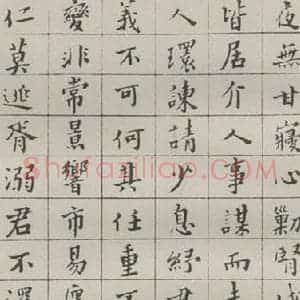 夜無甘寢心勤腎
皆居介人事謀而
人環諫請少息紓
義不可何具任重不
變非常景響市易
仁莫逃胥溺君不
Shufaziliao.com